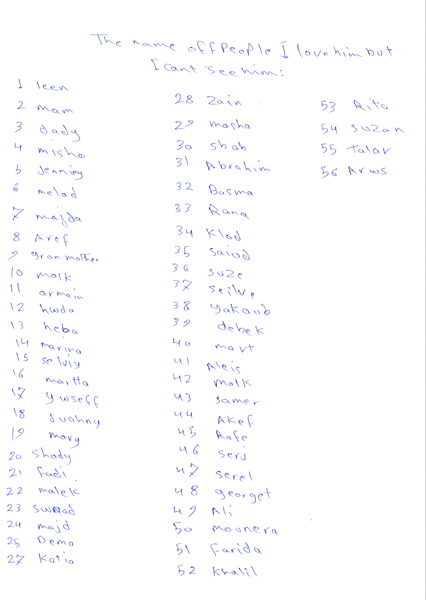 The name off People I love him but
I cant see him:
1 leen
2 mam
3 dady
4 misho
5 jenniny
6 melad
7 majda
8 Aref
9 granmother
10 malk
11 armain
12 hwda
13 heba
14 marina
15 selviy
16 martta
17 ywseff
18 Juohny
19 mary
20 Shady
21 fadi
22 malek
23 swaad
24 majd
25 Dema
27 Katia
28 Zain
29 masha
30 shah
31 Abrahim
32 Basma
33 Rana
34 Klod
35 saiud
36 suze
37 seilve
38 yakoub
39 debek
40 mart
41 Aleis
42 malk
43 samer
44 Akef
45 Rafe
46 serj
47 serel
48 georget
49 Ali
50 mounera
51 farida
52 khalil
53 Rita
54 suzan
55 talar
56 Arws